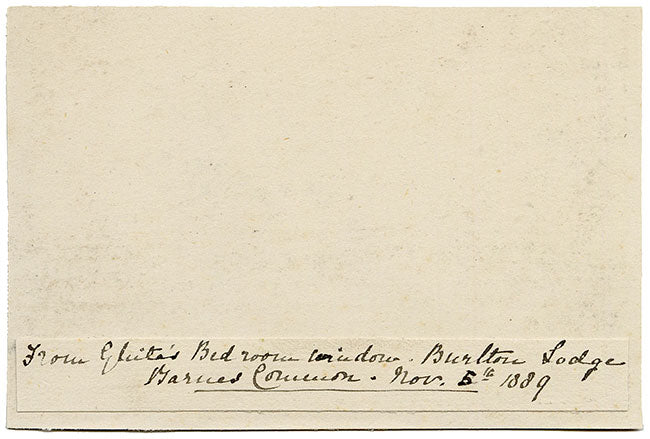 From Ghita's Bedroom window. Burlton Lodge
Barnes Common. Nov. 5th 1889